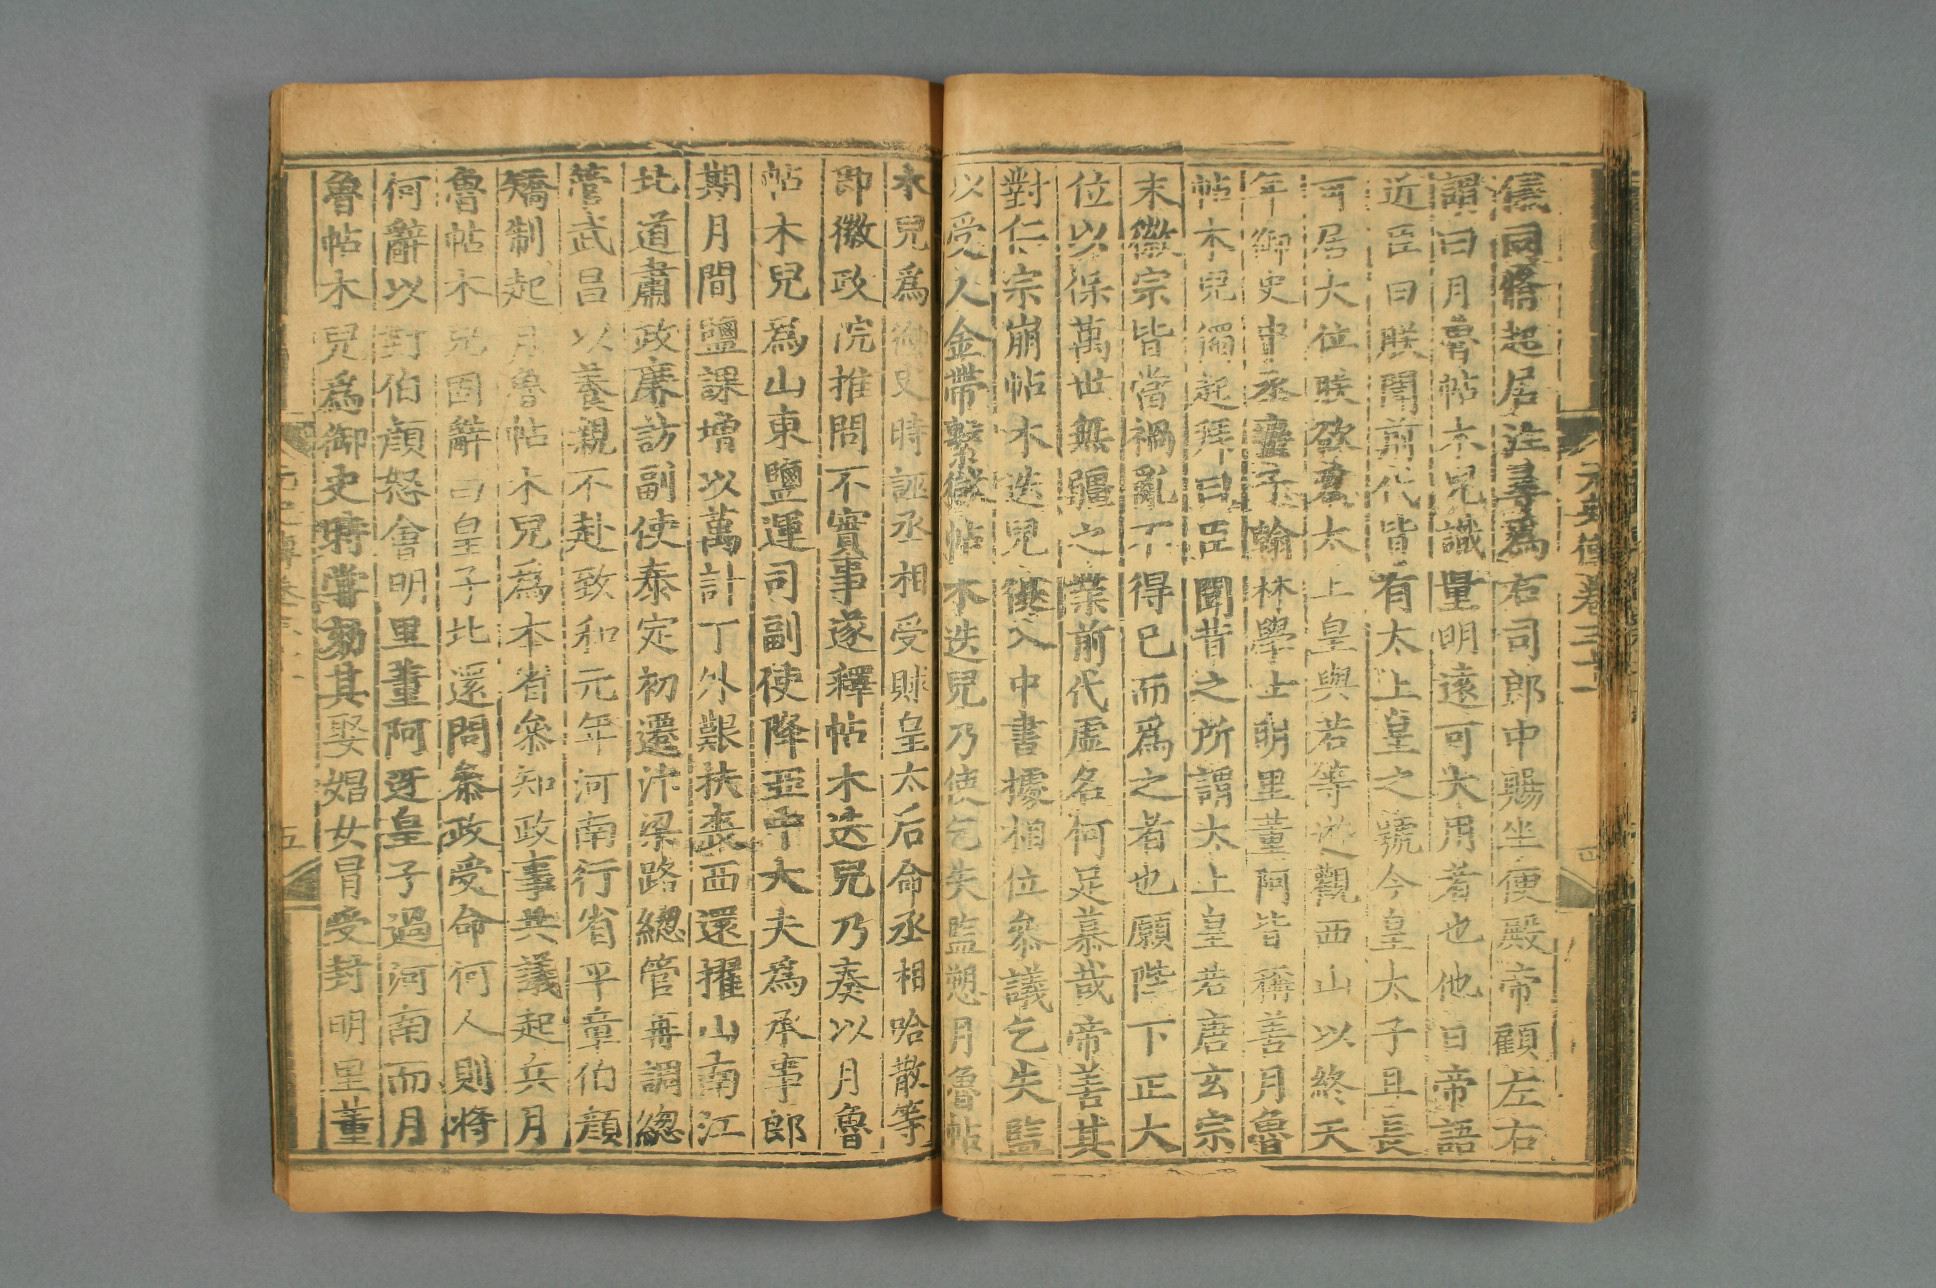 儀同脩起居注尋爲右司郎中賜坐便殿帝顧左右
謂曰月魯帖木兒識量明遠可大用者也他日帝語
近臣曰朕聞前代皆有太上皇之號今皇太子且長
可居大位朕欲爲太上皇與若等遊觀西山以終天
年御史中丞蠻子翰林學士明里董阿皆稱善月魯
帖木兒獨起拜曰臣聞昔之所謂太上皇若唐玄宗
末徽宗皆當禍亂不得已而爲之者也願陛下正大
位以保萬世無疆之業前代虛名何足慕哉帝善其
對仁宗崩帖木迭兒復入中書據相位參議乞失監
以受人金帶繫獄帖木迭兒乃使乞失監愬月魯帖
木兒爲御史時誣丞相受賕皇太后命丞相哈散等
即徽政院推問不實事遂釋帖木迭兒乃奏以月魯
帖木兒爲山東鹽運司副使降亞中大夫爲承事郎
期月間鹽課增以萬計丁外艱扶喪西還擢山南江
北道肅政廉訪副使泰定初遷汴梁路總管再調總
管武昌以養親不赴致和元年河南行省平章伯顏
矯制起月魯帖木兒爲本省參知政事共議起兵月
魯帖木兒固辭曰皇子北還問參政受命何人則將
何辭以對伯顏怒會明里董阿迓皇子過河南而月
魯帖木兒爲御史時嘗劾其娶娼女冒受封明里董
元史傳卷三十一
四
五